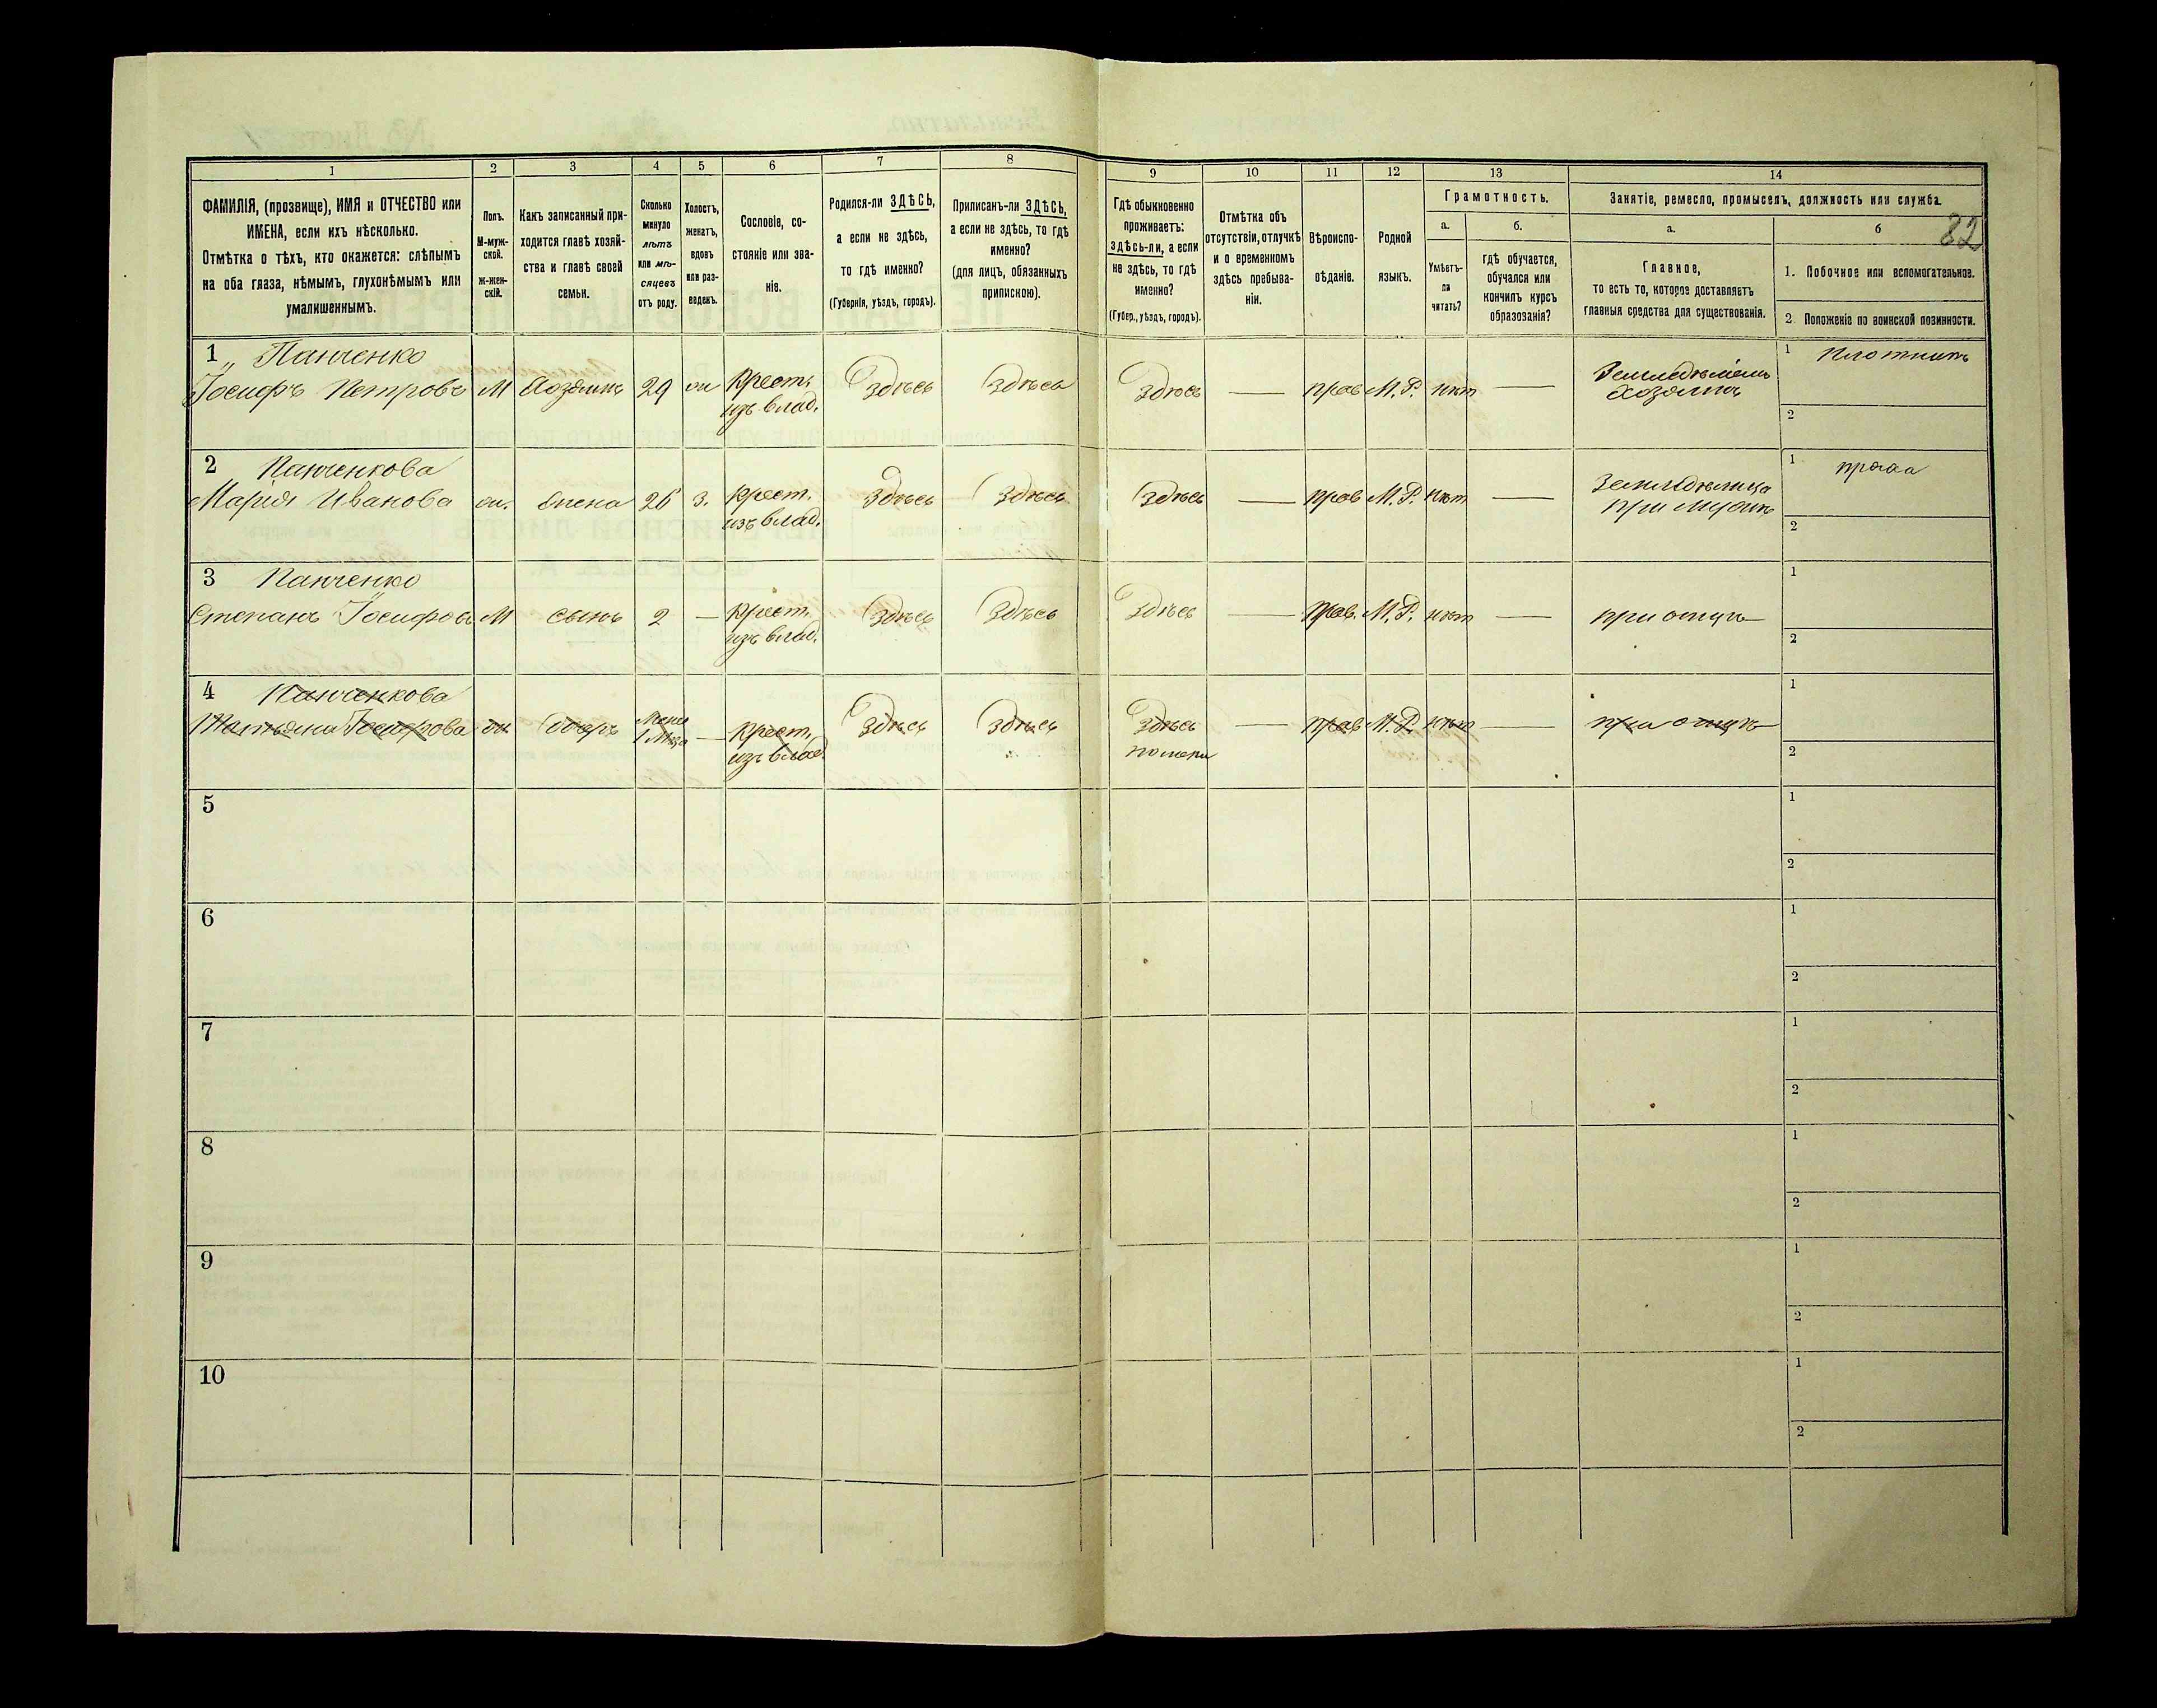 82
1
2
3
4
5
6
7
8
9
10
11
12
13
14
ФАМИЛІЯ, (прозвище), ИМЯ и ОТЧЕСТВО или
ИМЕНА, если ихъ нѣсколько.
Отмѣтка о тѣхъ, кто окажется: слѣпымъ
на оба глаза, нѣмымъ, глухонѣмымъ или
умалишеннымъ.
Полъ.
М-муж-
ской.
Ж-жен-
скій.
Какъ записанный при-
ходится главѣ хозяй-
ства и главѣ своей
семьи.
Сколько
минуло
лѣтъ
или мѣ-
сяцевъ
отъ роду.
Холостъ,
женатъ,
вдовъ
или раз-
веденъ.
Сословіе, со-
стояніе или зва-
ніе.
Родился-ли ЗДѢСЬ,
а если не здѣсь,
то гдѣ именно?
(Губернія, уѣздъ, городъ).
Приписанъ-ли ЗДѢСЬ,
а если не здѣсь, то гдѣ
именно?
(для лицъ, обязанныхъ
припискою).
Гдѣ обыкновенно
проживаетъ:
здѣсь-ли, а если
не здѣсь, то гдѣ
именно?
(Губер., уѣздъ, городъ).
Отмѣтка объ
отсутствіи, отлучкѣ
и о временномъ
здѣсь пребыва-
ніи.
Вѣроиспо-
вѣданіе.
Родной
языкъ.
Грамотность.
а.
Умѣетъ-
ли
читать?
б.
гдѣ обучается,
обучался или
кончилъ курсъ
образованія?
Занятіе, ремесло, промыселъ, должность или служба.
а.
Главное,
то есть то, которое доставляетъ
главныя средства для существованія.
б
1. Побочное или вспомогательное.
2. Положеніе по воинской повинности.
1 Панченко
Іосифъ Петровъ М Хозяинъ 29 ж Крест. изъ влад. Здѣсь Здѣсь Здѣсь — прав М.Р. нѣт — Земледѣлецъ хозяинъ
1 Плотникъ
2
2 Панченкова
Марія Иванова ж. жена 26 з. Крест. изъ влад. Здѣсь Здѣсь Здѣсь — прав М.Р. нѣт — Земледѣлица при мужѣ
1 пряха
2
3 Панченко
Степанъ Іосифовъ М сынъ 2 — Крест. изъ влад. Здѣсь Здѣсь Здѣсь — Прав. М.Р. нѣт — при отцѣ
1
2
4 Панченкова
Татьяна Іосифова ж. дочь Мене 1 Мца — Крест. изъ влад. Здѣсь Здѣсь Здѣсь — прав М.Р. нѣт — при отцѣ
1
2
5
1
2
6
1
2
7
1
2
8
1
2
9
1
2
10
1
2